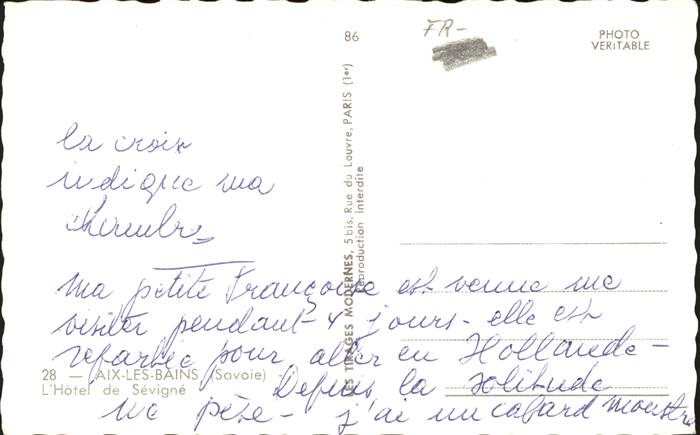 86
FR-
PHOTO
VERITABLE
la croix
indique ma
chambre
LES TIRAGES MODERNES, 5 bis, Rue du Louvre, PARIS (1er)
Reproduction interdite
Ma petite Françoise est venue me
visiter pendant 4 jours - elle est
repartie pour aller en Hollande -
Depuis la solitude
me pèse - j'ai un cafard monstre
28 — AIX-LES-BAINS (Savoie)
L'Hôtel de Sévigné